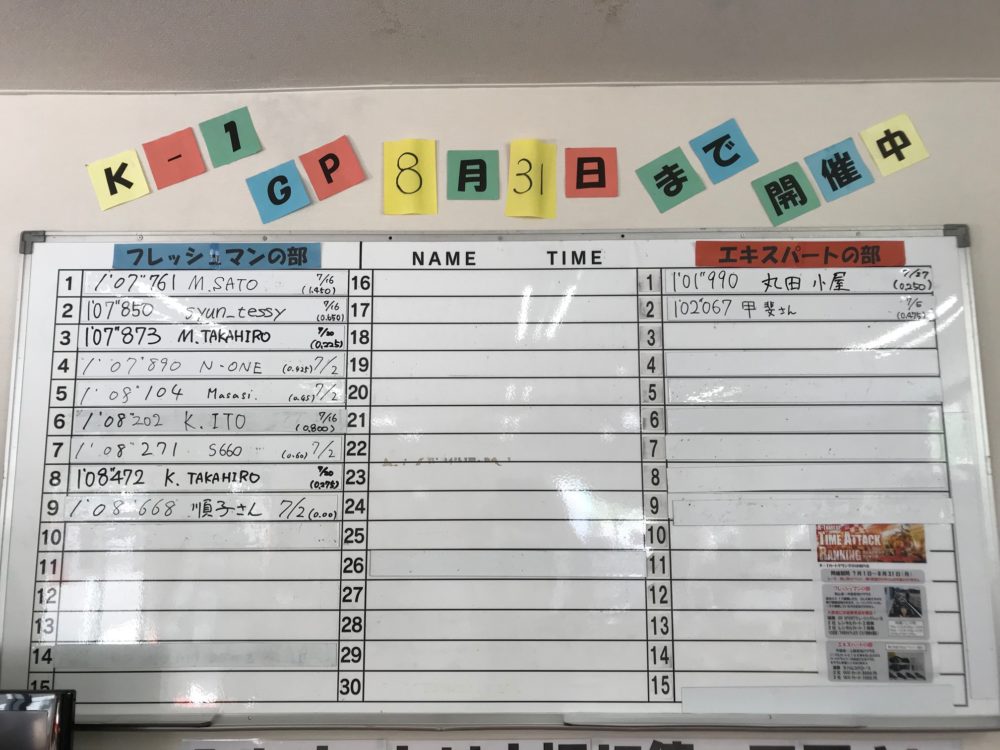 K-1 GP 8月31日まで開催中
フレッシュマンの部 NAME TIME エキスパートの部
1 1'07"761 M.SATO 7/16 (1.450)
2 1'07"850 syun_tessy 7/16 (0.650)
3 1'07"873 M.TAKAHIRO 7/20 (0.225)
4 1'07"890 N-ONE (0.425) 7/2
5 1'08"104 Masasi. (0.65) 7/2
6 1'08"202 K.ITO 7/16 (0.800)
7 1'08"271 S660 (0.60) 7/2
8 1'08"472 K.TAKAHIRO 7/20 (0.275)
9 1'08"668 順子さん 7/2 (0.00)
10
11
12
13
14
15
16
17
18
19
20
21
22
23
24
25
26
27
28
29
30
1 1'01"990 丸田小屋 7/27 (0.250)
2 1'02"067 甲斐さん 7/5 (0.475)
3
4
5
6
7
8
9
10
11
12
13
14
15
TIME ATTACK
RANNING
開催期間 7月1日~8月31日
フレッシュマンの部
エキスパートの部